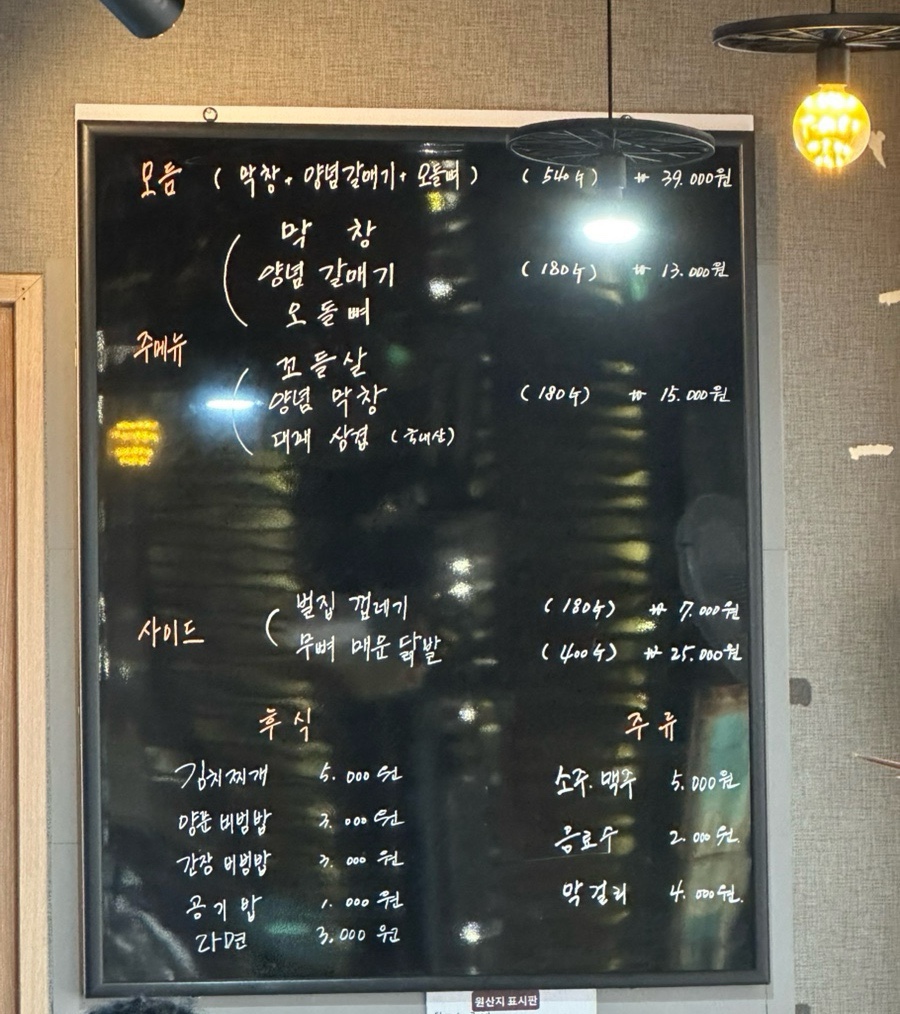 모듬 ( 막창 + 양념갈매기 + 오돌뼈 ) ( 540g ) ₩ 39.000원
막 창
양념 갈매기 ( 180g ) ₩ 13.000원
오 돌 뼈
주메뉴
꼬 들 살
양념 막창 ( 180g ) ₩ 15.000원
대패 삼겹 ( 국내산 )
사이드
벌집 껍데기 ( 180g ) ₩ 7.000원
무뼈 매운 닭발 ( 400g ) ₩ 25.000원
후 식
김치찌개 5.000원
양푼 비빔밥 3.000원
간장 비빔밥 3.000원
공 기 밥 1.000원
라면 3,000원
주 류
소주. 맥주 5.000원
음료수 2.000원.
막 걸 리 4.000원.
원산지 표시판